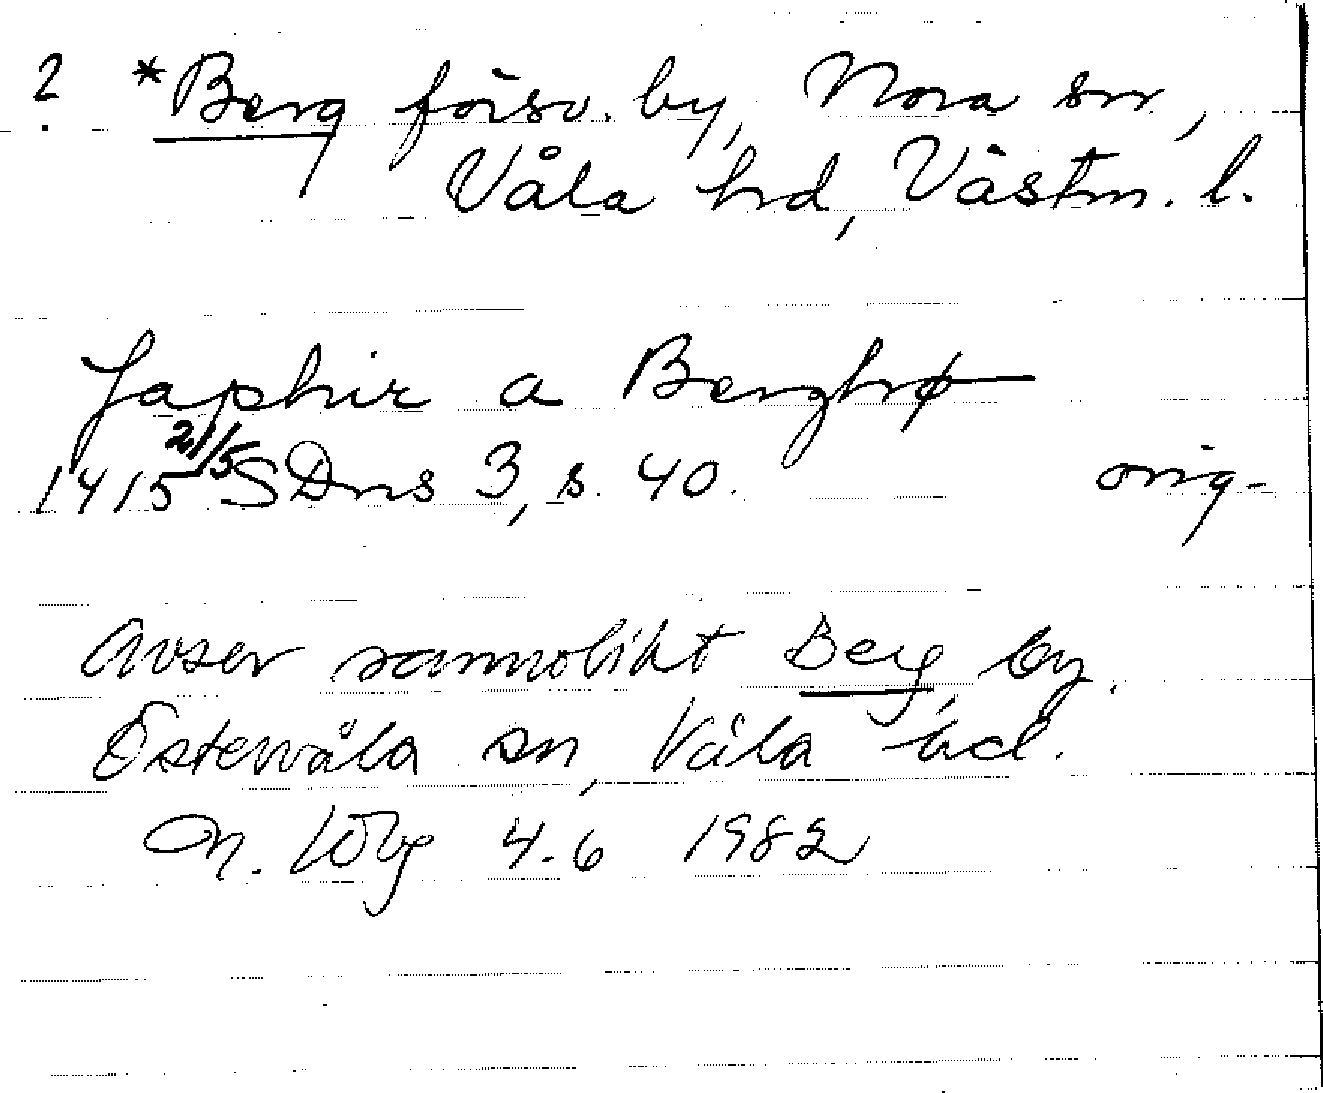 ? *Berg försv. by, Nora sn,
Våla hd, Västm. l.
Japhir a Berghø
1415 21/5 SDns 3, s. 40. orig-
Avser sannolikt Berg, by.
Östervåla sn, Våla hd.
4.6 1982